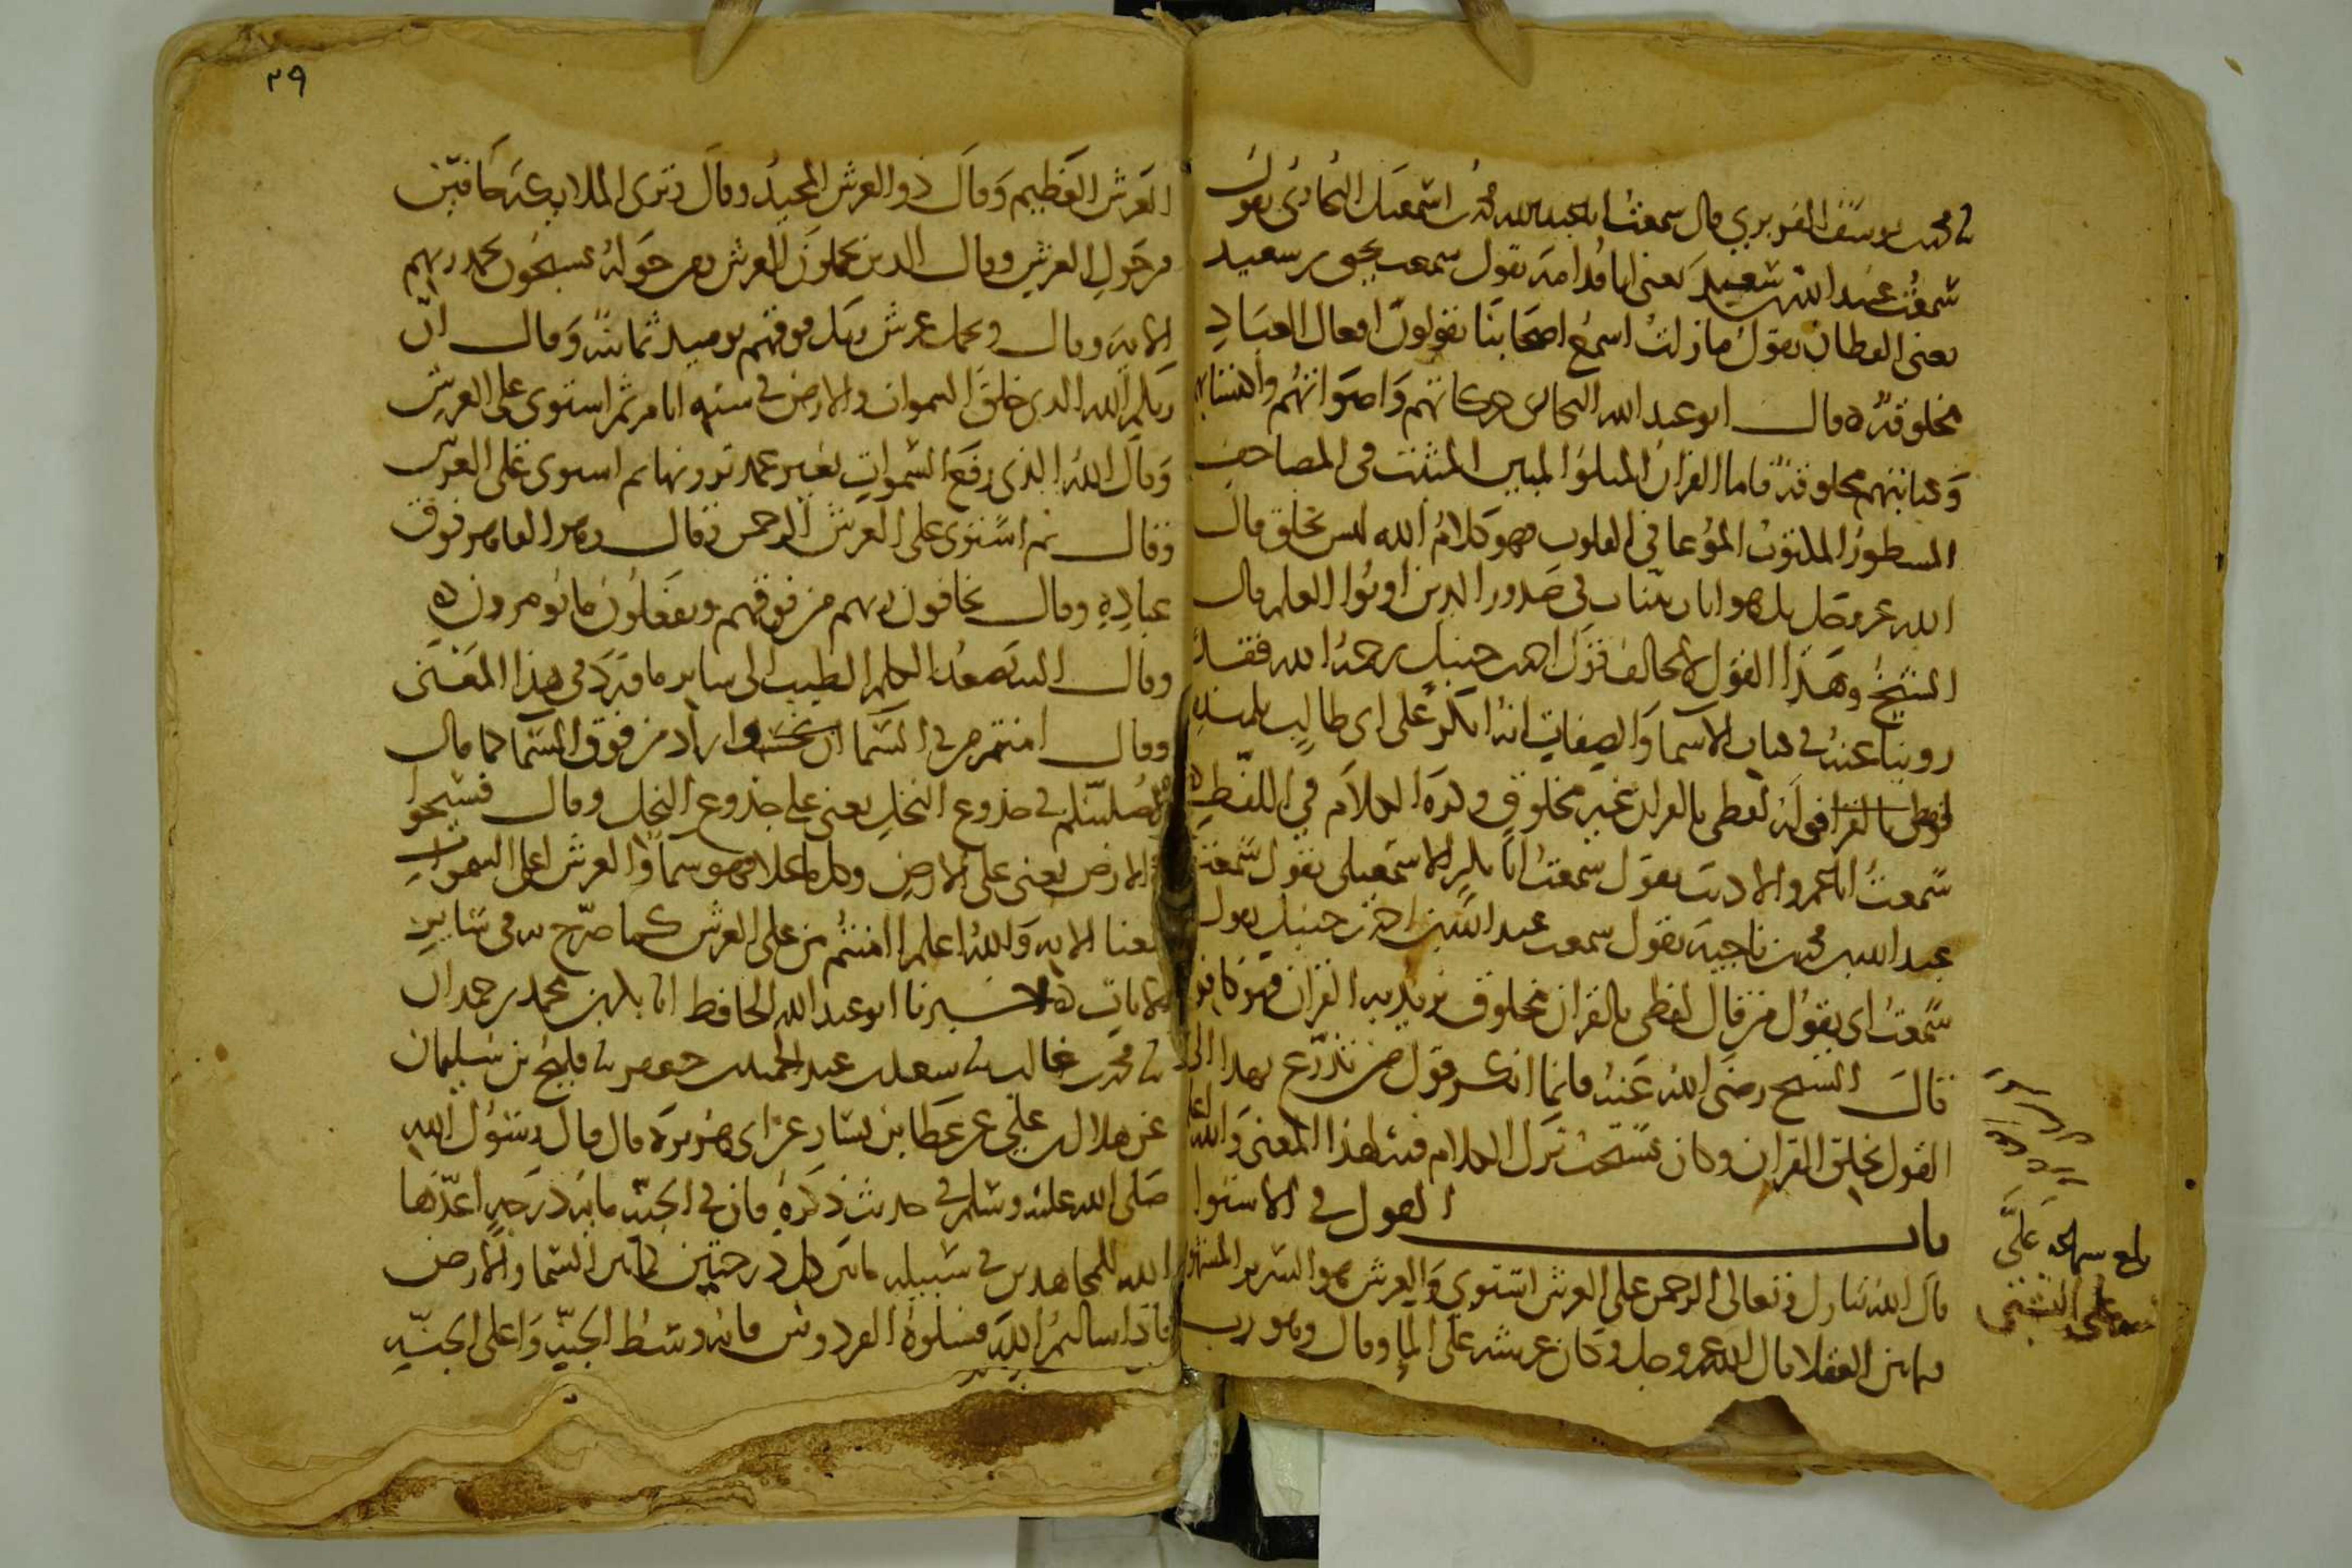 ثنا محمد بن يوسف الفربري قال سمعت ابا عبد الله محمد بن اسمعيل البخاري يقول
سمعت عبيد الله بن سعيد يعني ابا قدامة يقول سمعت يحيى بن سعيد
يعني القطان يقول ما زلت اسمع اصحابنا يقولون افعال العباد
مخلوقة ه قال ابو عبد الله البخاري حركاتهم واصواتهم واكتسابهم
وكتابتهم مخلوقة فاما القران المتلو المبين المثبت في المصاحف
المسطور المكتوب الموعا في القلوب فهو كلام الله ليس بخلق قال
الله عز وجل بل هو ايات بينات في صدور الذين اوتوا العلم قال
الشيخ وهذا القول لا يخالف قول احمد بن حنبل رحمه الله فقد
روينا عنه في كتاب الاسما والصفات انه انكر على ابي طالب تلميذه
قوله لفظي بالقران غير مخلوق وكره الكلام في اللفظ ه
سمعت ابا عمرو الاديب يقول سمعت ابا بكر الاسمعيلي يقول سمعت
عبد الله بن محمد بن ناجية يقول سمعت عبد الله بن احمد بن حنبل يقول
سمعت ابي يقول من قال لفظي بالقران مخلوق يريد به القران فهو كافر
قال الشيخ رضي الله عنه فانما انكر قول من تذرع بهذا الى
القول بخلق القران وكان يستحب ترك الكلام فيه لهذا المعنى والله اعلم
باب القول في الاستوا
قال الله تبارك وتعالى الرحمن على العرش استوى والعرش هو السرير المشهور
فيما بين العقلا قال الله عز وجل وكان عرشه على الما وقال وهو رب
بلغ على
على الشيخ
٢٩
العرش العظيم وقال ذو العرش المجيد وقال وترى الملايكة حافين
من حول العرش وقال الذين يحملون العرش ومن حوله يسبحون بحمد ربهم
الاية وقال ويحمل عرش ربك فوقهم يوميذ ثمانية وقال ان
ربكم الله الذي خلق السموات والارض في ستة ايام ثم استوى على العرش
وقال الله الذي رفع السموات بغير عمد ترونها ثم استوى على العرش
وقال ثم استوى على العرش الرحمن وقال وهو القاهر فوق
عباده وقال يخافون ربهم من فوقهم ويفعلون ما يومرون ه
وقال اليه يصعد الكلم الطيب الى ساير ما ورد في هذا المعنى
وقال اامنتم من في السما ان يخسف واراد من فوق السما كما قال
لاصلبنكم في جذوع النخل يعني على جذوع النخل وقال فسيحوا
في الارض يعني على الارض وكل ما علا فهو سما والعرش اعلى السموات
فمعنا الاية والله اعلم اامنتم من على العرش كما صرح به في ساير
الايات ه اخبرنا ابو عبد الله الحافظ انا بكر بن محمد بن حمدان
ثنا محمد بن غالب ثنا سعد بن عبد الحميد بن جعفر ثنا فليح بن سليمان
عن هلال بن علي عن عطا بن يسار عن ابي هريرة قال قال رسول الله
صلى الله عليه وسلم في حديث ذكره فان في الجنة ماية درجة اعدها
الله للمجاهدين في سبيله ما بين كل درجتين كما بين السما والارض
فاذا سالتم الله فسلوه الفردوس فانه وسط الجنة واعلى الجنة